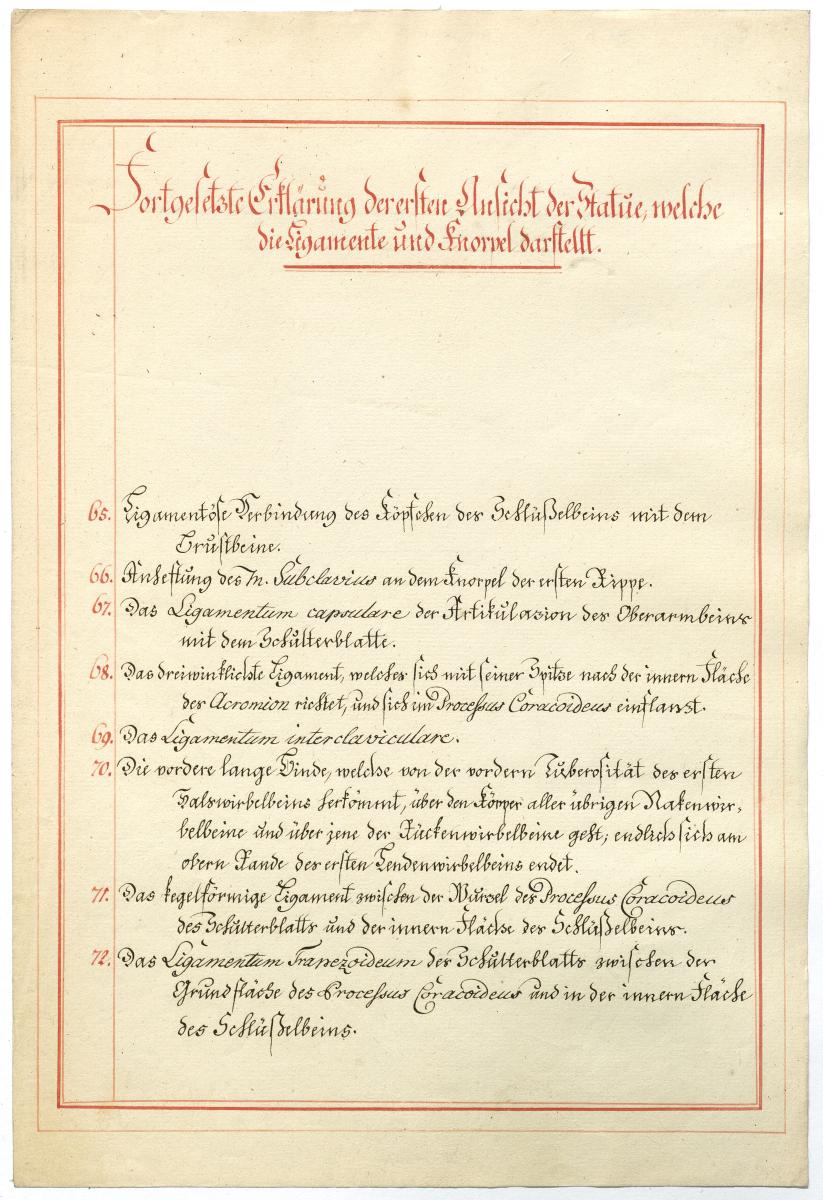 Fortgesetzte Erklärung der ersten Ansicht der Statue, welche
die Ligamente und Knorpel darstellt.
65. Ligamentöse Verbindung des Köpfchen des Schlüßelbeins mit dem
Brustbeine.
66. Anheftung des M. Subclavius an dem Knorpel der ersten Rippe.
67. Das Ligamentum capsulare der Artikulazion des Oberarmbeins
mit dem Schulterblatte.
68. Das dreiwinklichte Ligament, welches sich mit seiner Spitze nach der innern Fläche
des Acromion richtet, und sich im Processus Coracoideus einflanzt.
69. Das Ligamentum interclaviculare.
70. Die vordere lange Binde, welche von der vordern Tuberosität des ersten
Halswirbelbeins herkömmt, über den Körper aller übrigen Nakenwir-
belbeine und über jene der Rückenwirbelbeine geht; endlich sich am
obern Rande des ersten Lendenwirbelbeins endet.
71. Das kegelförmige Ligament zwischen der Wurzel des Processus Coracoideus
des Schulterblatts und der innern Fläche des Schlüßelbeins.
72. Das Ligamentum Trapezoideum des Schulterblatts zwischen der
Grundfläche des Processus Coracoideus und in der innern Fläche
des Schlüßelbeins.